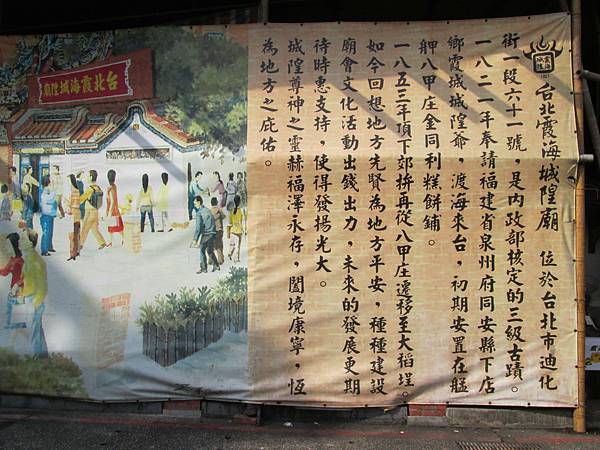 霞海
城隍
台北霞海城隍廟 位於台北市迪化
街一段六十一號，是內政部核定的三級古蹟。
一八二一年奉請福建省泉州府同安縣下店
鄉霞城城隍爺，渡海來台，初期安置在艋
舺八甲庄金同利糕餅鋪。
一八五三年頂下郊拚再從八甲庄遷移至大稻埕。
如今回想地方先賢為地方平安，種種建設
廟會文化活動出錢出力，未來的發展更期
待時惠支持，使得發揚光大。
城隍尊神之靈赫福澤永存，闔境康寧，恆
為地方之庇佑。
台北霞海城隍廟